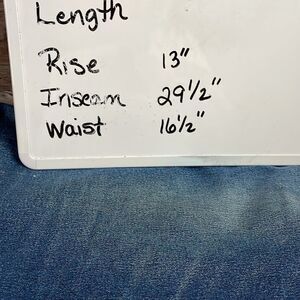 Length
Rise 13"
Inseam 29 1/2"
Waist 16 1/2"